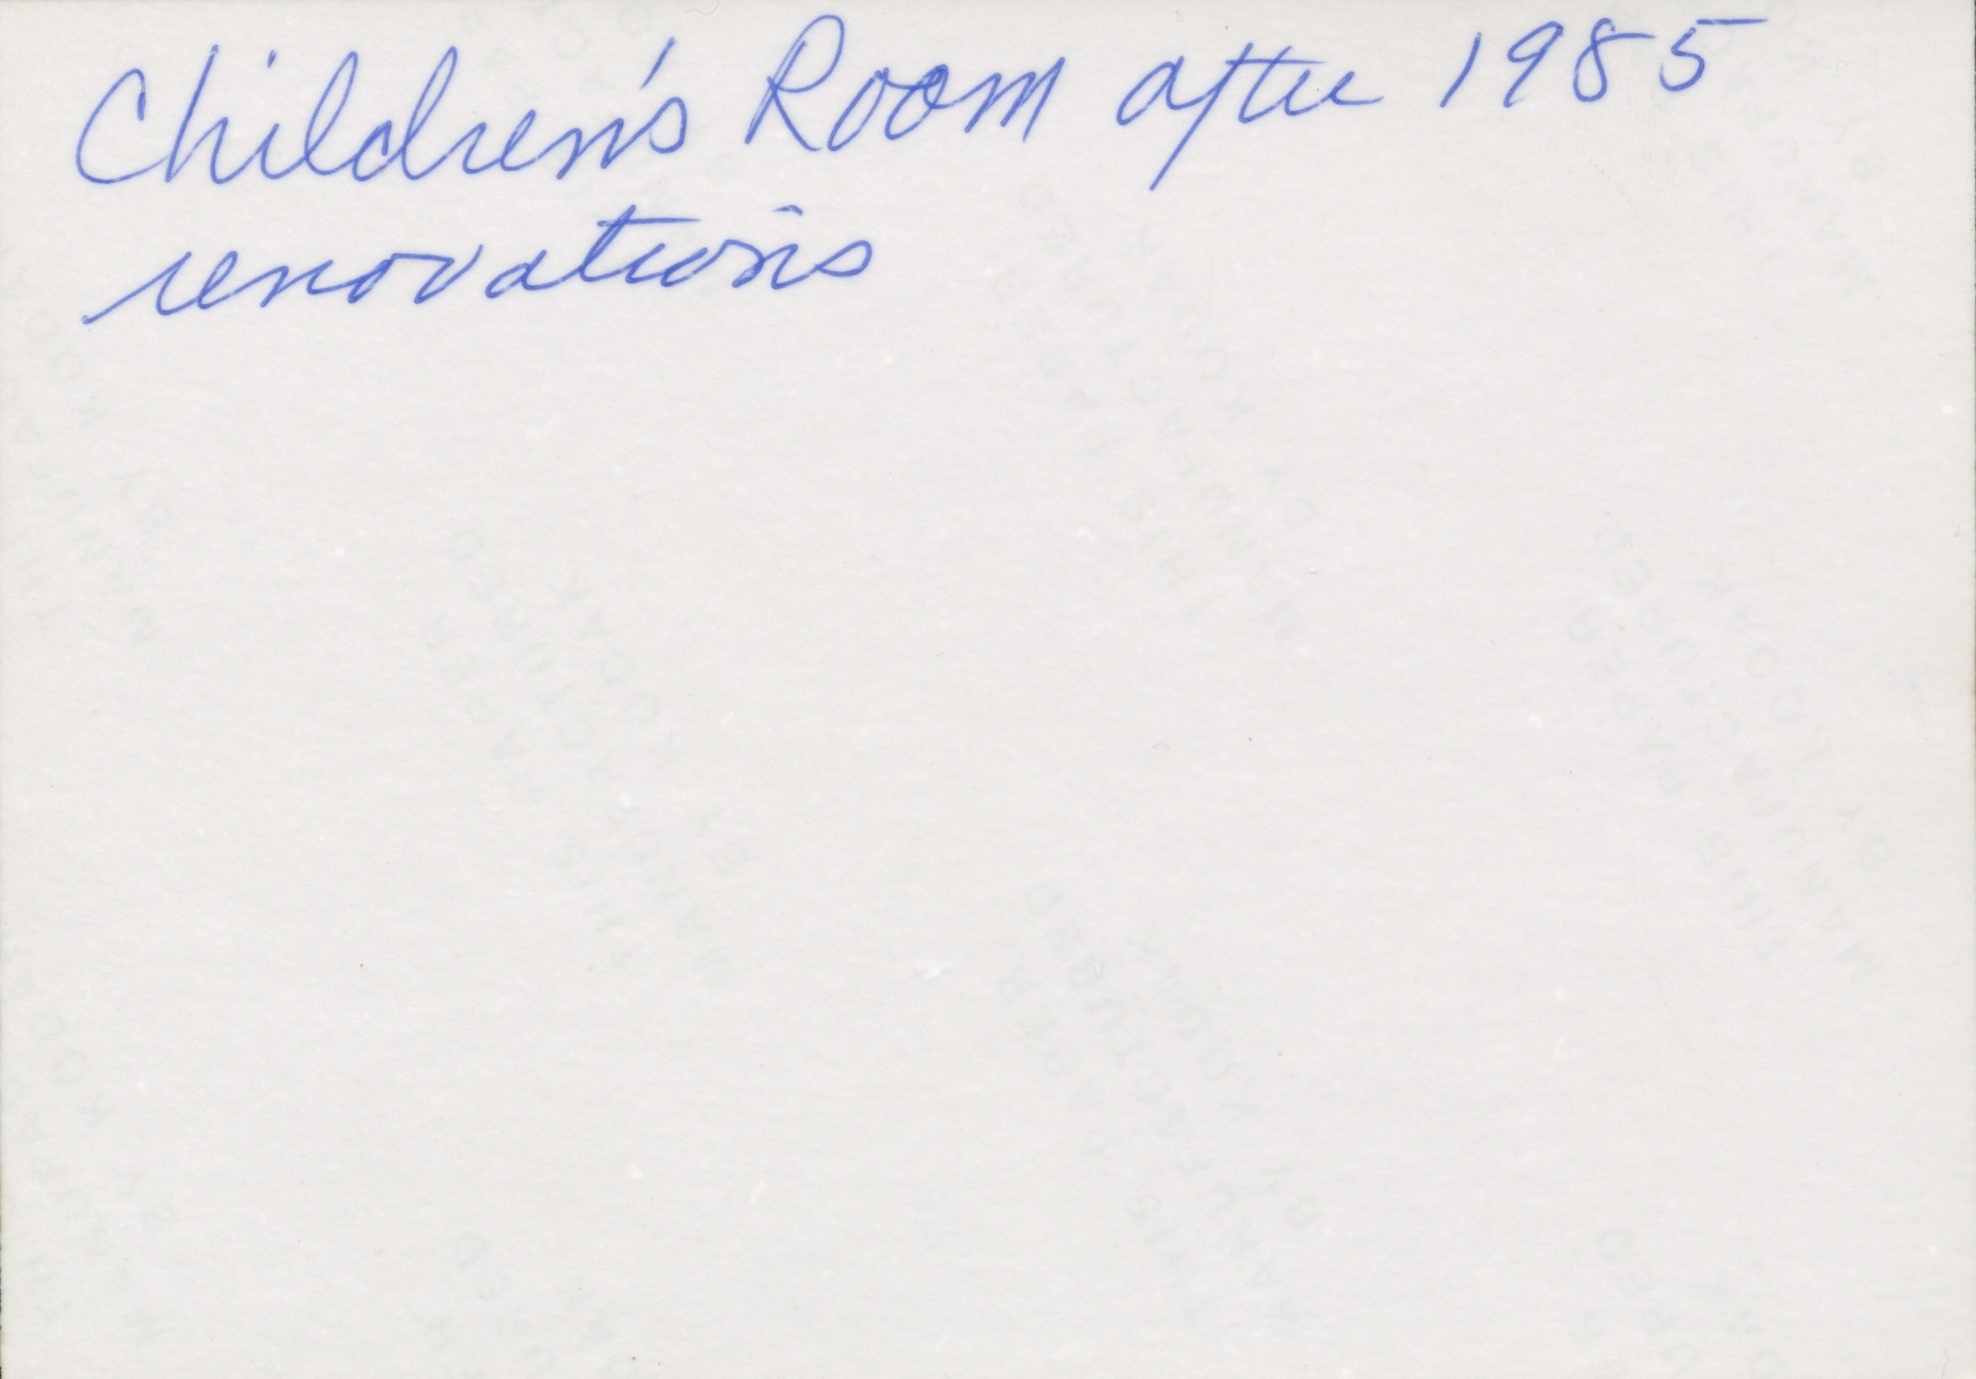 Children's Room after 1985
renovations
THIS PAPER
MANUFACTURED
BY KODAK